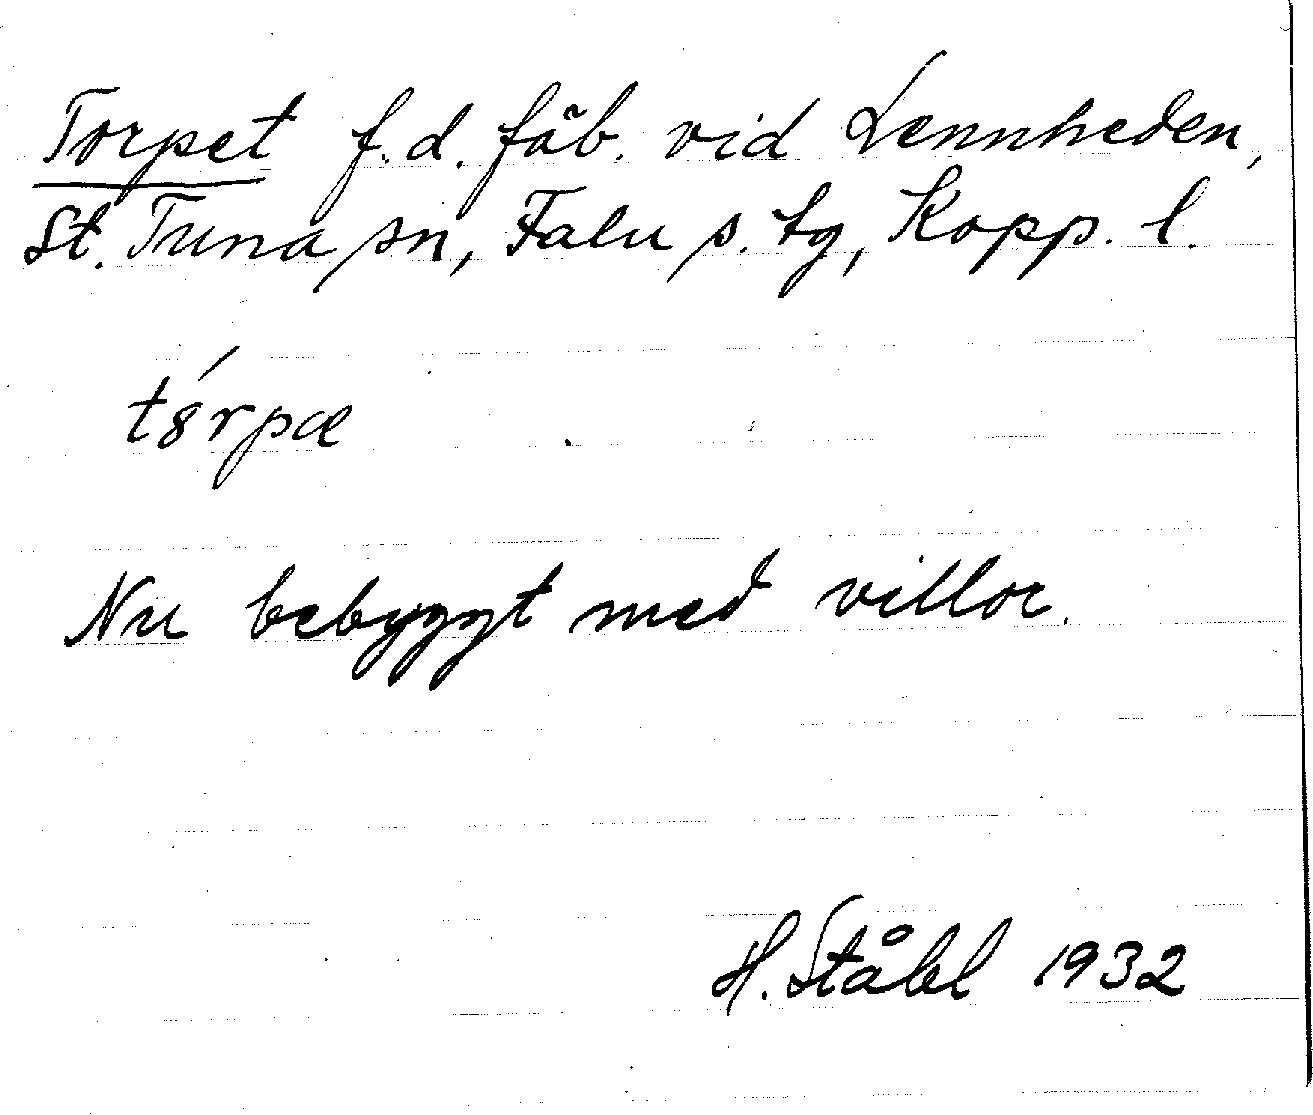 Torpet f.d. fäb. vid Lennheden,
St. Tuna sn, Falu s. tg, Kopp. l.
tȣ́rpæ
Nu bebyggt med villor.
H. Ståhl 1932